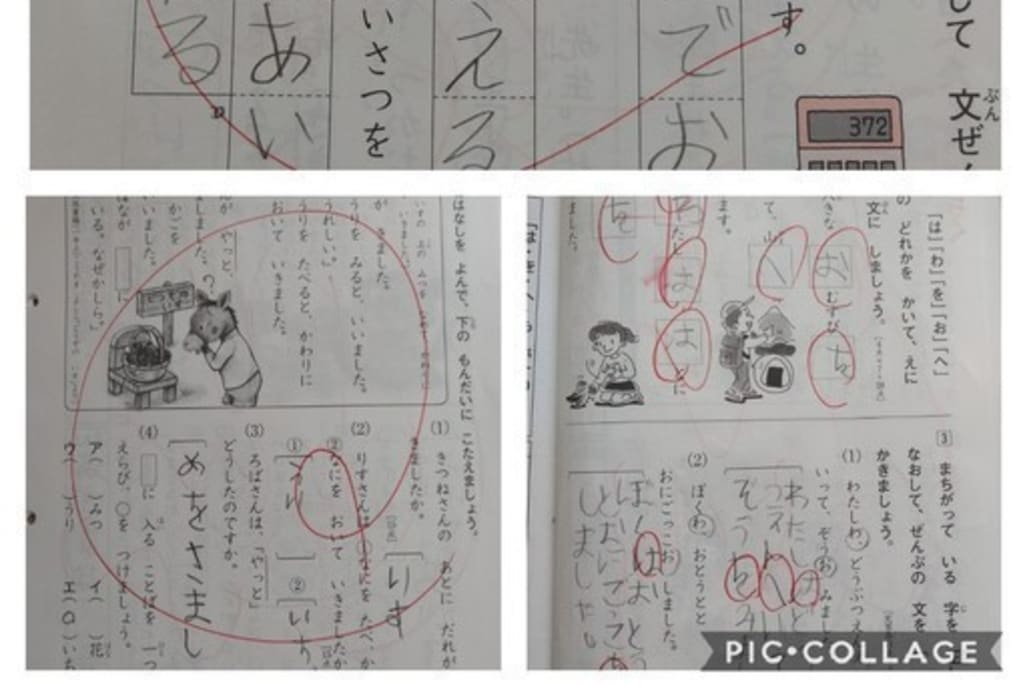 して 文ぜ
ぶん
す。
372
でお
える
いさつを
あい
る
はなしを よんで、下の もんだいに こたえましょう。
きました。
うりを みると、いいました。
うれしい。」
うりを たべると、かわりに
おいて いきました。
やっと、
ました。
かごを
いいました。
はなが
に
いる。なぜかしら。」
(1) きつねさんの あとに だれが
きましたか。
りす
(2) りすさんは、①なにを たべ、か
②なにを おいて いきましたか
①
うり
②
(3) ろばさんは、「やっと」
どうしたのですか。
めをさまし
(4) に 入る ことばを 一つ
えらび、○を つけましょう。
ア( )みつ イ( )花
ウ( )うり エ(○)いち
「は」「わ」「を」「お」「へ」
の どれかを かいて、えに
文に しましょう。
おむすびを
へ
は
は
を
ました。
3 まちがって いる 字を
なおして、ぜんぶの 文を
かきましょう。
(1) わたしわ、どうぶつえん
いって、ぞうお みました
わたしはど
ぞうをみ
(2) ぼくわ、おとうとと
おにごっこお しました。
ぼくはおとう
とおにごっこを
しました
PIC•COLLAGE